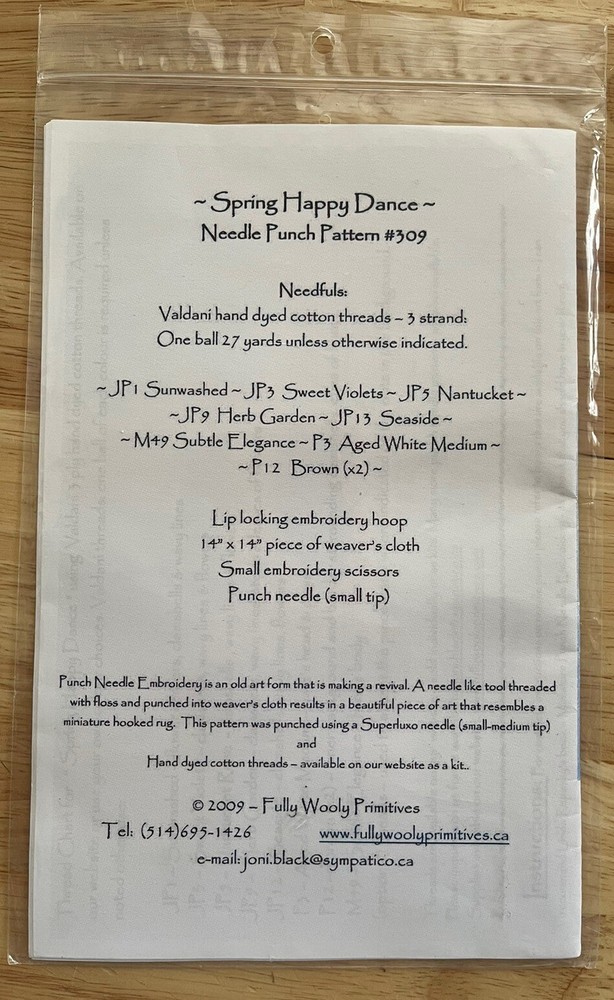 ~ Spring Happy Dance ~
Needle Punch Pattern #309
Needfuls:
Valdani hand dyed cotton threads – 3 strand:
One ball 27 yards unless otherwise indicated.
~ JP1 Sunwashed ~ JP3 Sweet Violets ~ JP5 Nantucket ~
~ JP9 Herb Garden ~ JP13 Seaside ~
~ M49 Subtle Elegance ~ P3 Aged White Medium ~
~ P12 Brown (x2) ~
Lip locking embroidery hoop
14" x 14" piece of weaver's cloth
Small embroidery scissors
Punch needle (small tip)
Punch Needle Embroidery is an old art form that is making a revival. A needle like tool threaded
with floss and punched into weaver's cloth results in a beautiful piece of art that resembles a
miniature hooked rug. This pattern was punched using a Superluxo needle (small-medium tip)
and
Hand dyed cotton threads – available on our website as a kit..
© 2009 – Fully Wooly Primitives
Tel: (514)695-1426 www.fullywoolyprimitives.ca
e-mail: joni.black@sympatico.ca